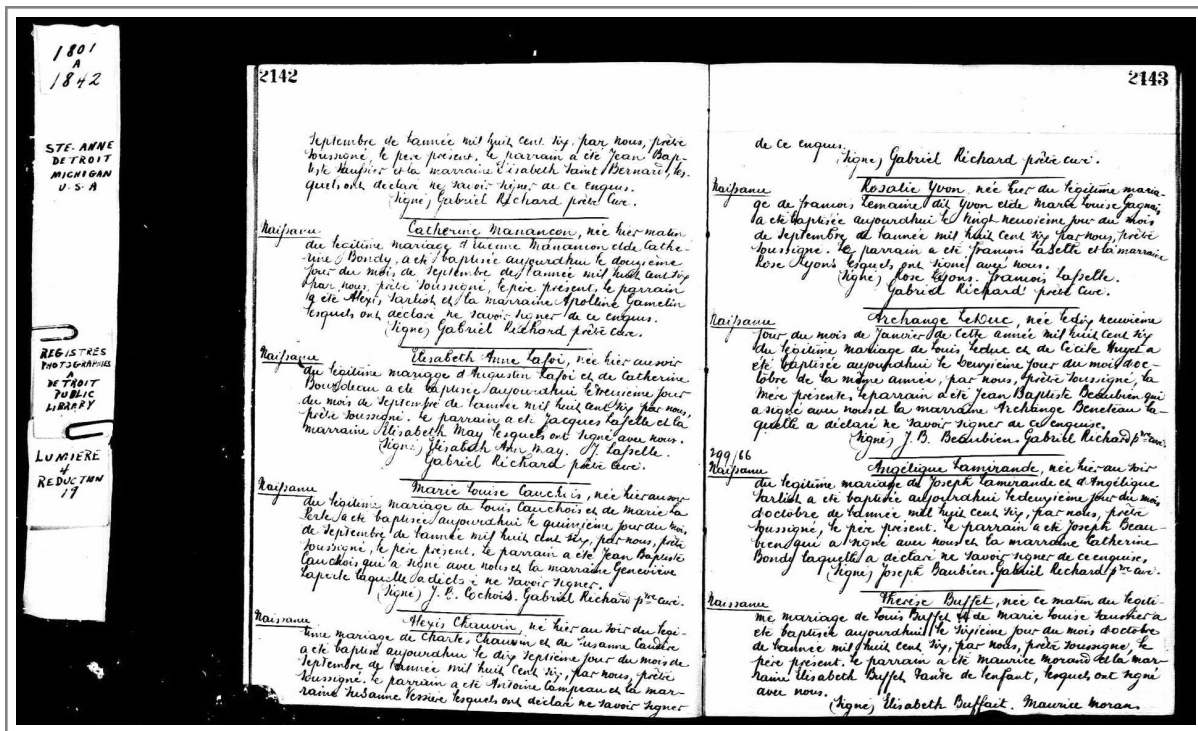 1801
A
1842
STE-ANNE
DETROIT
MICHIGAN
U.S.A
REGISTRES
PHOTOGRAPHIÉS
A
DETROIT
PUBLIC
LIBRARY
LUMIERE
&
REDUCTION
19
2142
Septembre de l'année mil huit cent six, par nous, prêtre
soussigné, le père présent. le parrain a été Jean Bap-
tiste et la marraine Elisabeth Saint Bernard, les-
quels ont déclaré ne savoir signer de ce enquis.
(Signé) Gabriel Richard prêtre Curé.
Naissance Catherine Manancon, née hier matin
du légitime mariage d'Etienne Manancon et de Cathe-
rine Bondy, a été baptisée aujourd'hui le douzième
jour du mois de Septembre de l'année mil huit cent six
par nous, prêtre soussigné, le père présent, le parrain
a été Alexis Sarliot et la marraine Apolline Gamelin
lesquels ont déclaré ne savoir signer de ce enquis.
(Signé) Gabriel Richard prêtre Curé.
Naissance Elisabeth Anne Lafoi, née hier au soir
du légitime mariage d'Augustin Lafoi et de Catherine
Bourdeau a été baptisée aujourd'hui le treizième jour
du mois de Septembre de l'année mil huit cent six par nous,
prêtre soussigné. le parrain a été Jacques Laselle et la
marraine Elisabeth May lesquels ont signé avec nous.
(Signé) Elisabeth Ann May. J. Laselle.
Gabriel Richard prêtre Curé.
Naissance Marie Louise Cauchois, née hier au soir
du légitime mariage de Louis Cauchois et de Marie La
Perle a été baptisée aujourd'hui le quinzième jour du mois
de Septembre de l'année mil huit cent six, par nous, prêtre
soussigné, le père présent. le parrain a été Jean Baptiste
Cauchois qui a signé avec nous et la marraine Geneviève
Laperle laquelle a déclaré ne savoir signer.
(Signé) J. B. Cochois. Gabriel Richard ptre curé.
Naissance Alexis Chauvin, né hier au soir du légi-
time mariage de Charles Chauvin et de Susanne
a été baptisé aujourd'hui le dix septième jour du mois de
Septembre de l'année mil huit cent six, par nous, prêtre
soussigné. le parrain a été Antoine Campeau et la mar-
raine Susanne Vessière lesquels ont déclaré ne savoir signer
2143
de ce enquis.
(Signé) Gabriel Richard prêtre curé.
Naissance Rosalie Yvon, née hier du légitime maria-
ge de francois Lemaine dit Yvon et de Marie Louise Gagné,
a été baptisée aujourd'hui le vingt neuvième jour du mois
de Septembre de l'année mil huit cent six par nous, prêtre
soussigné. le parrain a été francois Laselle et la marraine
Rose Lyons lesquels ont signé avec nous.
(Signé) Rose Lyons. francois Lasselle.
Gabriel Richard prêtre Curé.
Naissance Archange LeDuc, née le dix neuvième
jour du mois de Janvier de cette année mil huit cent six
du légitime mariage de Louis Leduc et de Cécile Huyet a
été baptisée aujourd'hui le deuxième jour du mois d'oc-
tobre de la même année, par nous, prêtre soussigné, la
mère présente, le parrain a été Jean Baptiste Beaubien qui
a signé avec nous et la marraine Archange Beneteau la-
quelle a déclaré ne savoir signer de ce enquise.
(Signé) J. B. Beaubien. Gabriel Richard ptre curé.
299/66
Naissance Angélique Lamirande, née hier au soir
du légitime mariage de Joseph Lamirande et d'Angélique
Sarliot a été baptisée aujourd'hui le deuxième jour du mois
d'octobre de l'année mil huit cent six, par nous, prêtre
soussigné, le père présent. le parrain a été Joseph Beau-
bien qui a signé avec nous et la marraine Catherine
Bondy laquelle a déclaré ne savoir signer de ce enquise.
(Signé) Joseph Baubien. Gabriel Richard ptre curé.
Naissance Therèse Buffet, née ce matin du légiti-
me mariage de Louis Buffet et de Marie Louise Saussier a
été baptisée aujourd'hui le sixième jour du mois d'octobre
de l'année mil huit cent six, par nous, prêtre soussigné, le
père présent. le parrain a été Maurice Morand et la mar-
raine Elisabeth Buffet tante de l'enfant, lesquels ont signé
avec nous.
(Signé) Elisabeth Buffait. Maurice Moran